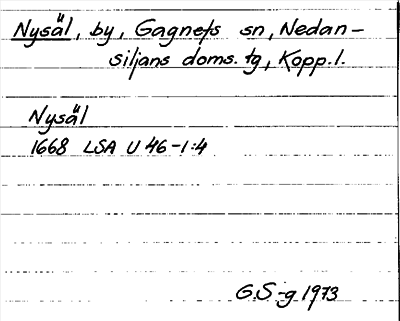 Nysäl, by, Gagnefs sn, Nedan-
siljans doms. tg, Kopp. l.
Nysäl
1668 LSA U 46-1:4
G.S-g 1973